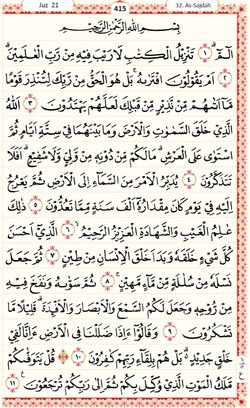 Juz 21
415
32. As-Sajdah
بِسْمِ اللّٰهِ الرَّحْمٰنِ الرَّحِيْمِ
الٓمّٓ ۚ ١ تَنْزِيْلُ الْكِتٰبِ لَا رَيْبَ فِيْهِ مِنْ رَّبِّ الْعٰلَمِيْنَ ؕ
٢ اَمْ يَقُوْلُوْنَ افْتَرٰىهُ ۚ بَلْ هُوَ الْحَقُّ مِنْ رَّبِّكَ لِتُنْذِرَ قَوْمًا
مَّاۤ اَتٰىهُمْ مِّنْ نَّذِيْرٍ مِّنْ قَبْلِكَ لَعَلَّهُمْ يَهْتَدُوْنَ ٣ اَللّٰهُ
الَّذِيْ خَلَقَ السَّمٰوٰتِ وَالْاَرْضَ وَمَا بَيْنَهُمَا فِيْ سِتَّةِ اَيَّامٍ ثُمَّ
اسْتَوٰى عَلَى الْعَرْشِ ؕ مَا لَكُمْ مِّنْ دُوْنِهٖ مِنْ وَّلِيٍّ وَّلَا شَفِيْعٍ ؕ اَفَلَا
تَتَذَكَّرُوْنَ ٤ يُدَبِّرُ الْاَمْرَ مِنَ السَّمَآءِ اِلَى الْاَرْضِ ثُمَّ يَعْرُجُ
اِلَيْهِ فِيْ يَوْمٍ كَانَ مِقْدَارُهٗۤ اَلْفَ سَنَةٍ مِّمَّا تَعُدُّوْنَ ٥ ذٰلِكَ
عٰلِمُ الْغَيْبِ وَالشَّهَادَةِ الْعَزِيْزُ الرَّحِيْمُ ۙ ٦ الَّذِيْۤ اَحْسَنَ
كُلَّ شَيْءٍ خَلَقَهٗ وَبَدَاَ خَلْقَ الْاِنْسَانِ مِنْ طِيْنٍ ۚ ٧ ثُمَّ جَعَلَ
نَسْلَهٗ مِنْ سُلٰلَةٍ مِّنْ مَّآءٍ مَّهِيْنٍ ۚ ٨ ثُمَّ سَوّٰىهُ وَنَفَخَ فِيْهِ
مِنْ رُّوْحِهٖ وَجَعَلَ لَكُمُ السَّمْعَ وَالْاَبْصَارَ وَالْاَفْـِٕدَةَ ؕ قَلِيْلًا مَّا
تَشْكُرُوْنَ ٩ وَقَالُوْۤا ءَاِذَا ضَلَلْنَا فِي الْاَرْضِ ءَاِنَّا لَفِيْ
خَلْقٍ جَدِيْدٍ ؕ بَلْ هُمْ بِلِقَآئِ رَبِّهِمْ كٰفِرُوْنَ ١٠ قُلْ يَتَوَفّٰىكُمْ
مَّلَكُ الْمَوْتِ الَّذِيْ وُكِّلَ بِكُمْ ثُمَّ اِلٰى رَبِّكُمْ تُرْجَعُوْنَ ١١